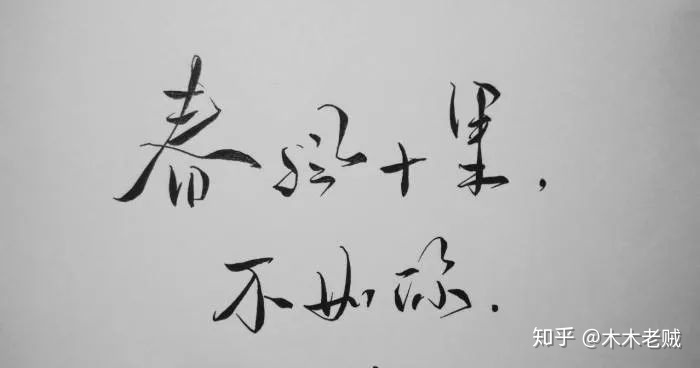 春风十里，
不如你.
知乎 @木木老贼